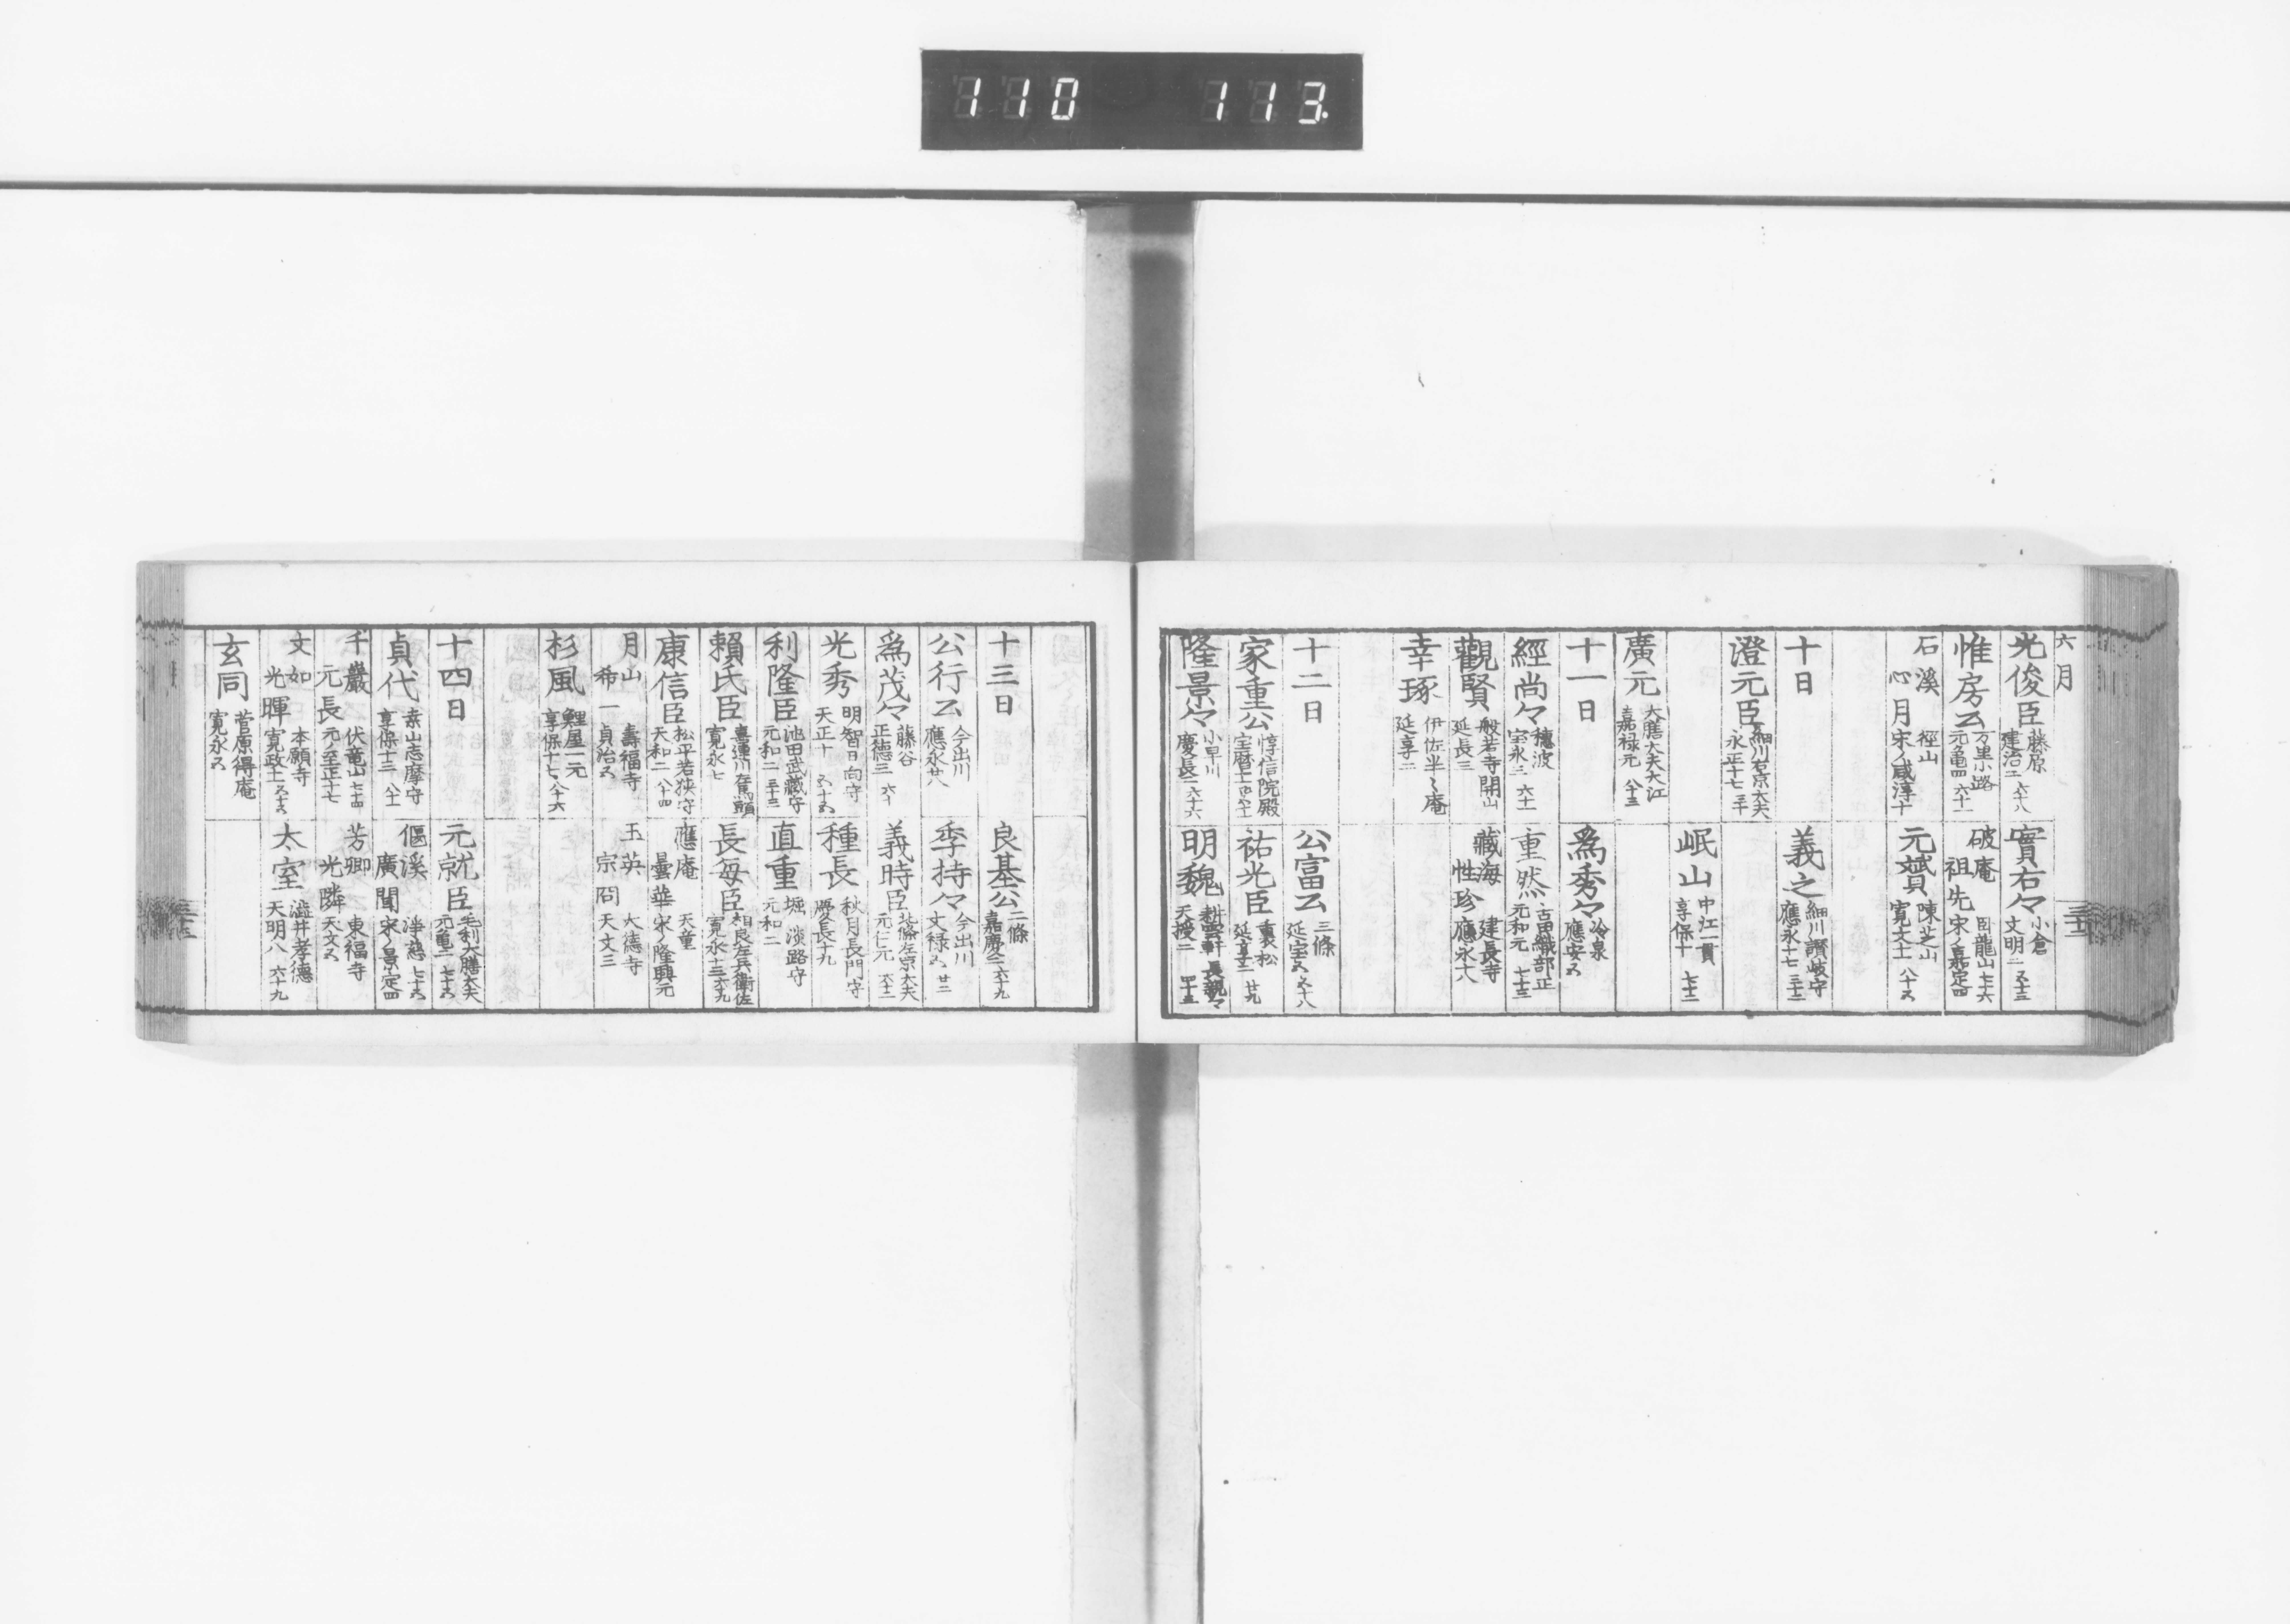 110 113.
六月
光俊臣 藤原 建治二 六十八
實右々 小倉 文明二 五十三
惟房公 万里小路 元亀四 六十一
破庵 祖先 臥龍山 七十六 宋ノ嘉定四
石溪 心月 徑山 宋ノ咸淳十
元贇 陳芝山 寛文十一 八十五
十日
義之 細川讃岐守 應永十七
澄元臣 細川右京大夫 永正十七
岷山 中江一貫 享保十 七十二
廣元 大膳大夫大江 嘉禄元 八十三
十一日
為秀々 冷泉 應安五
經尚々 穂波 宝永三 六十一
重然 古田織部正 元和元 七十三
觀賢 般若寺開山 延長三
藏海 性珍 建長寺 應永十八
幸琢 伊佐半々庵 延享二
十二日
公富公 三條 延宝五 五十八
家重公 惇信院殿 宝暦十一
祐光臣 裏松 延享二 廿九
隆景々 小早川 慶長二 六十六
明魏 耕雲軒 長親々 天授二
十三日
良基公 二條 嘉慶二 六十九
公行公 今出川 應永廿八
季持々 今出川 文禄五 廿二
為茂々 藤谷 正徳三 六十
義時臣 北條左京大夫 元仁元 六十二
光秀 明智日向守 天正十 五十五
種長 秋月長門守 慶長十九
利隆臣 池田武藏守 元和二 三十三
直重 堀淡路守 元和二
頼氏臣 喜連川左馬頭 寛永七
長毎臣 相良左兵衛佐 寛永十三 六十九
康信臣 松平若狭守 天和二 八十四
應庵 曇華 天童 宋ノ隆興元
月山 希一 壽福寺 貞治五
玉英 宗冏 大徳寺 天文三
杉風 鯉屋一元 享保十七 八十六
十四日
元就臣 毛利大膳大夫 元亀二 七十五
貞代 桒山志摩守 享保十三 八十一
偃溪 廣聞 淨慈 七十五 宋ノ景定四
千巖 元長 伏竜山 七十四 元ノ至正十七
芳卿 光隣 東福寺 天文五
文如 光暉 本願寺 寛政十一 五十六
太室 澁井孝徳 天明八 六十九
玄同 菅原得庵 寛永五